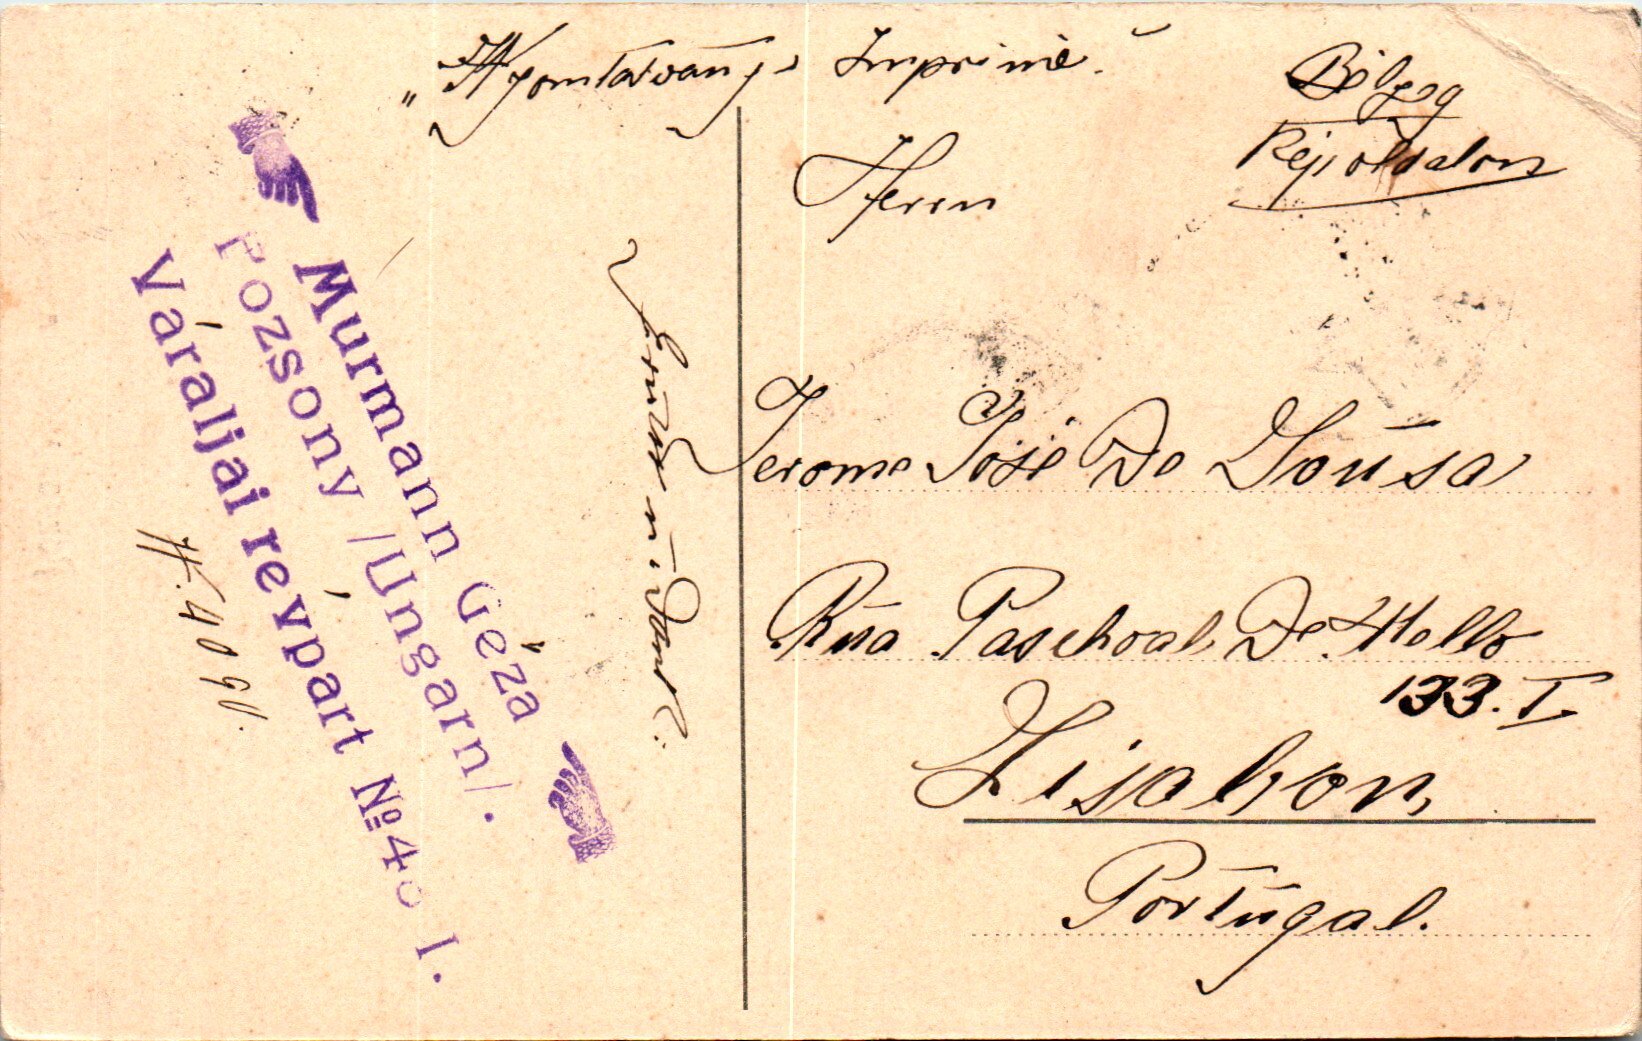 „Nyomtatvány" Imprimé.
Bélyeg
Képoldalon
Herrn
Jerome José De Soúsa
Rúa Paschoal De Mello
133. I
Lissabon,
Portúgal.
Murmann Géza
Pozsony /Ungarn/.
Váraljai révpart № 40 I.